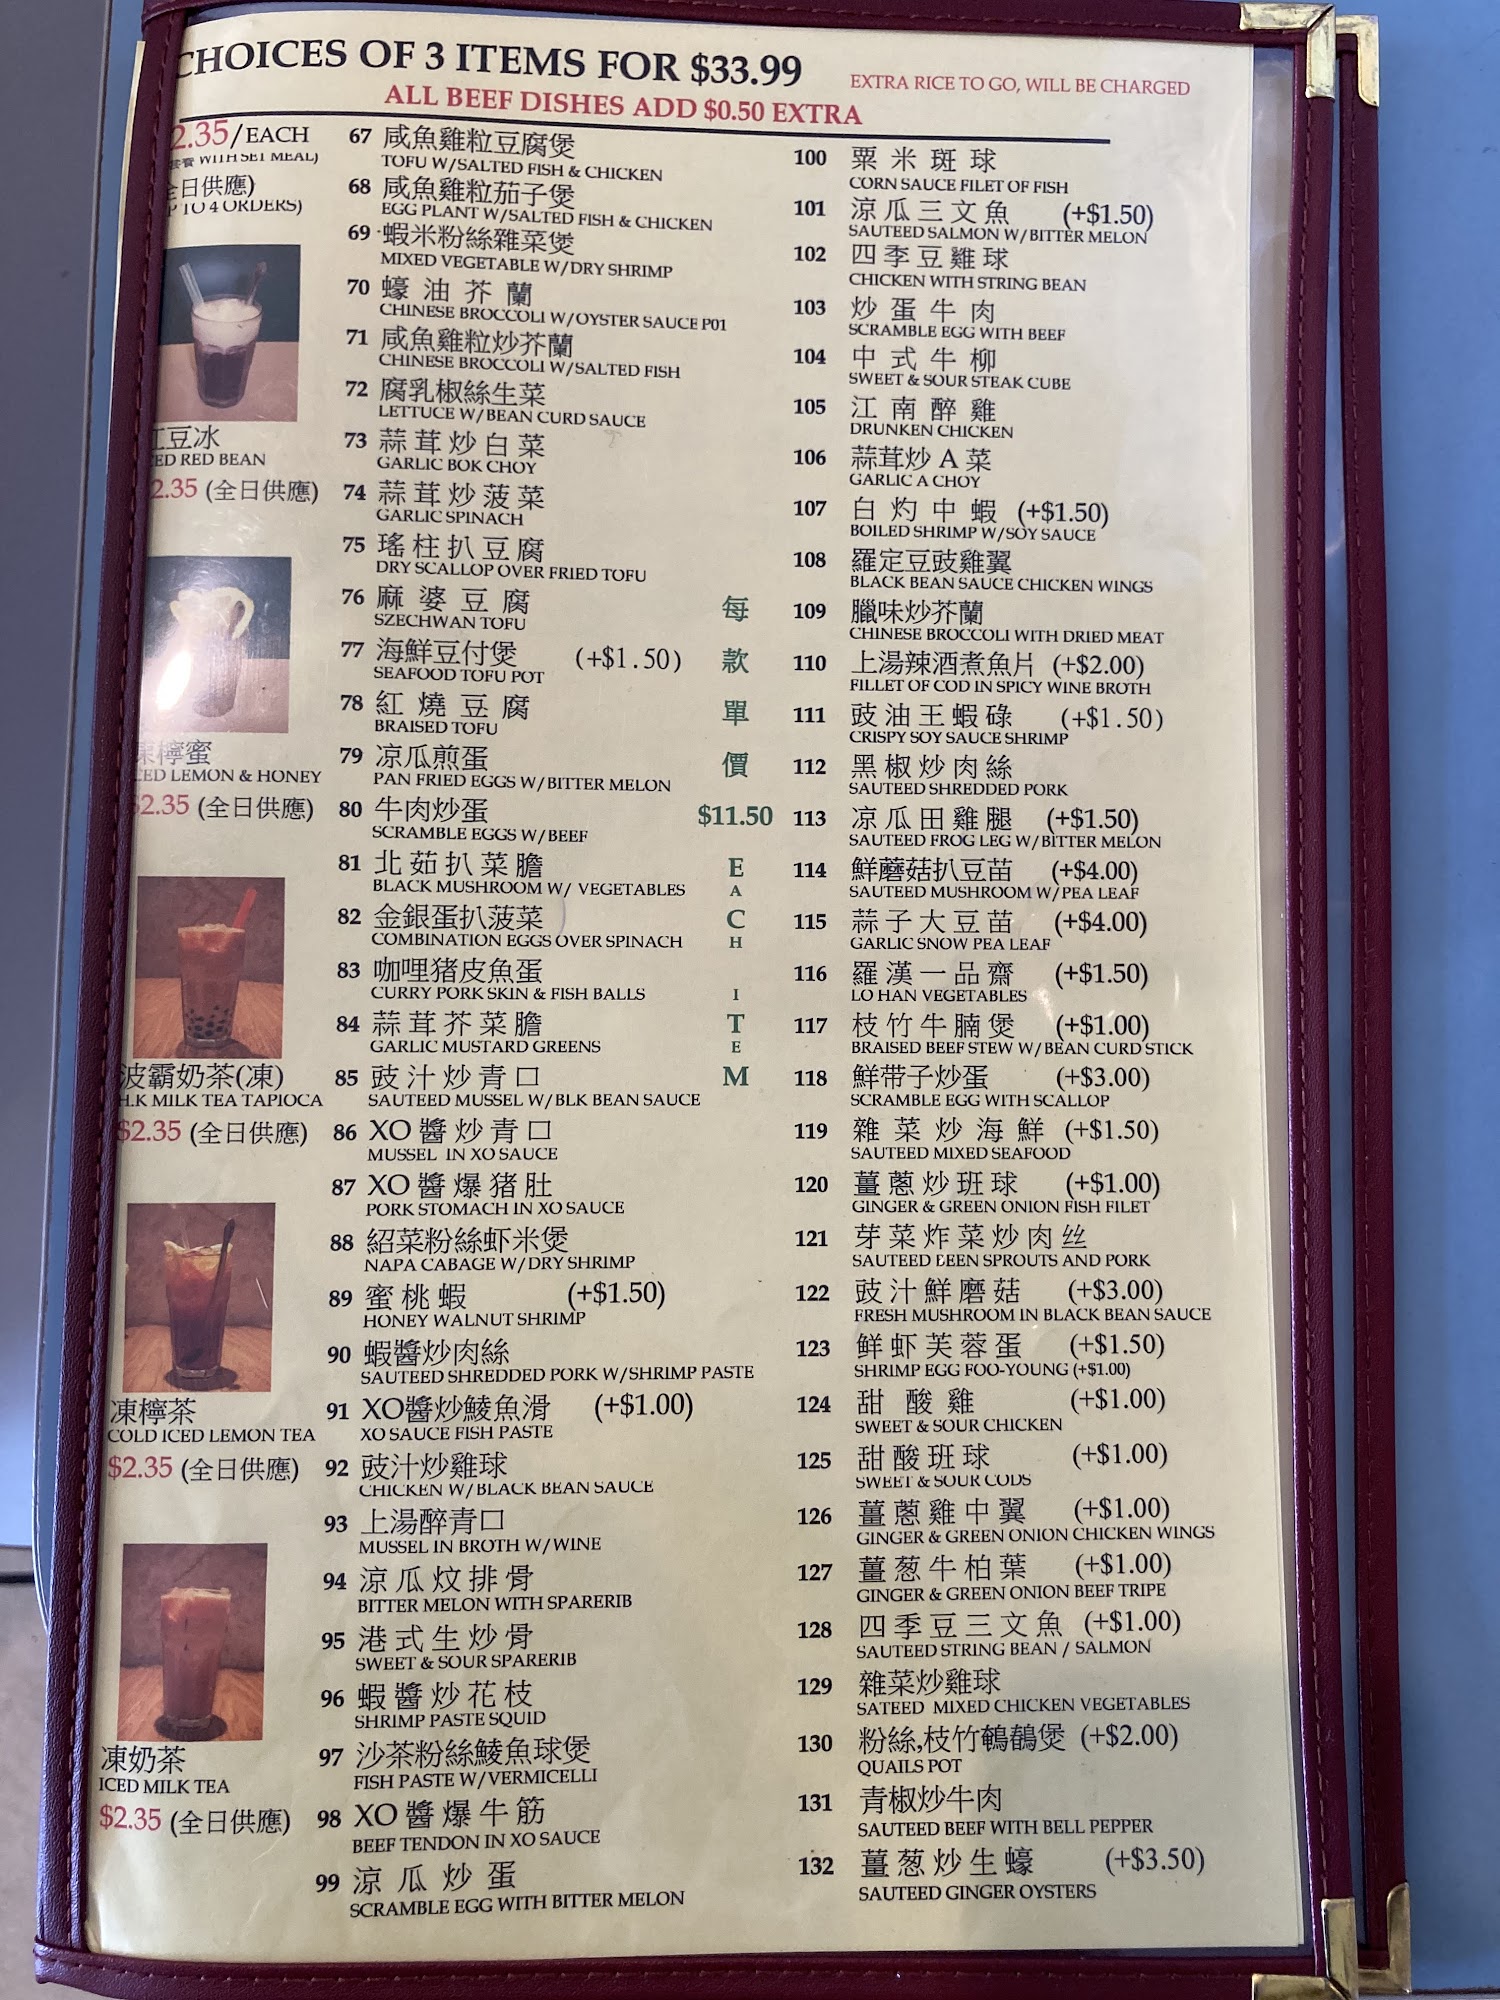 CHOICES OF 3 ITEMS FOR $33.99
EXTRA RICE TO GO, WILL BE CHARGED
ALL BEEF DISHES ADD $0.50 EXTRA
2.35/EACH
WITH SET MEAL)
全日供應)
TO 4 ORDERS)
紅豆冰
ED RED BEAN
2.35 (全日供應)
凍檸蜜
CED LEMON & HONEY
$2.35 (全日供應)
波霸奶茶(凍)
H.K MILK TEA TAPIOCA
$2.35 (全日供應)
凍檸茶
COLD ICED LEMON TEA
$2.35 (全日供應)
凍奶茶
ICED MILK TEA
$2.35 (全日供應)
67 咸魚雞粒豆腐煲
TOFU W/SALTED FISH & CHICKEN
68 咸魚雞粒茄子煲
EGG PLANT W/SALTED FISH & CHICKEN
69 蝦米粉絲雜菜煲
MIXED VEGETABLE W/DRY SHRIMP
70 蠔油芥蘭
CHINESE BROCCOLI W/OYSTER SAUCE P01
71 咸魚雞粒炒芥蘭
CHINESE BROCCOLI W/SALTED FISH
72 腐乳椒絲生菜
LETTUCE W/BEAN CURD SAUCE
73 蒜茸炒白菜
GARLIC BOK CHOY
74 蒜茸炒菠菜
GARLIC SPINACH
75 瑤柱扒豆腐
DRY SCALLOP OVER FRIED TOFU
76 麻婆豆腐
SZECHWAN TOFU
77 海鮮豆付煲 (+$1.50)
SEAFOOD TOFU POT
78 紅燒豆腐
BRAISED TOFU
79 凉瓜煎蛋
PAN FRIED EGGS W/BITTER MELON
80 牛肉炒蛋
SCRAMBLE EGGS W/BEEF
81 北茹扒菜膽
BLACK MUSHROOM W/ VEGETABLES
82 金銀蛋扒菠菜
COMBINATION EGGS OVER SPINACH
83 咖哩猪皮魚蛋
CURRY PORK SKIN & FISH BALLS
84 蒜茸芥菜膽
GARLIC MUSTARD GREENS
85 豉汁炒青口
SAUTEED MUSSEL W/BLK BEAN SAUCE
86 XO醬炒青口
MUSSEL IN XO SAUCE
87 XO醬爆猪肚
PORK STOMACH IN XO SAUCE
88 紹菜粉絲虾米煲
NAPA CABAGE W/DRY SHRIMP
89 蜜桃蝦 (+$1.50)
HONEY WALNUT SHRIMP
90 蝦醬炒肉絲
SAUTEED SHREDDED PORK W/SHRIMP PASTE
91 XO醬炒鯪魚滑 (+$1.00)
XO SAUCE FISH PASTE
92 豉汁炒雞球
CHICKEN W/BLACK BEAN SAUCE
93 上湯醉青口
MUSSEL IN BROTH W/WINE
94 涼瓜炆排骨
BITTER MELON WITH SPARERIB
95 港式生炒骨
SWEET & SOUR SPARERIB
96 蝦醬炒花枝
SHRIMP PASTE SQUID
97 沙茶粉絲鯪魚球煲
FISH PASTE W/VERMICELLI
98 XO醬爆牛筋
BEEF TENDON IN XO SAUCE
99 涼瓜炒蛋
SCRAMBLE EGG WITH BITTER MELON
每
款
單
價
$11.50
E
A
C
H
I
T
E
M
100 粟米斑球
CORN SAUCE FILET OF FISH
101 涼瓜三文魚 (+$1.50)
SAUTEED SALMON W/BITTER MELON
102 四季豆雞球
CHICKEN WITH STRING BEAN
103 炒蛋牛肉
SCRAMBLE EGG WITH BEEF
104 中式牛柳
SWEET & SOUR STEAK CUBE
105 江南醉雞
DRUNKEN CHICKEN
106 蒜茸炒A菜
GARLIC A CHOY
107 白灼中蝦 (+$1.50)
BOILED SHRIMP W/SOY SAUCE
108 羅定豆豉雞翼
BLACK BEAN SAUCE CHICKEN WINGS
109 臘味炒芥蘭
CHINESE BROCCOLI WITH DRIED MEAT
110 上湯辣酒煮魚片 (+$2.00)
FILLET OF COD IN SPICY WINE BROTH
111 豉油王蝦碌 (+$1.50)
CRISPY SOY SAUCE SHRIMP
112 黑椒炒肉絲
SAUTEED SHREDDED PORK
113 凉瓜田雞腿 (+$1.50)
SAUTEED FROG LEG W/BITTER MELON
114 鮮蘑菇扒豆苗 (+$4.00)
SAUTEED MUSHROOM W/PEA LEAF
115 蒜子大豆苗 (+$4.00)
GARLIC SNOW PEA LEAF
116 羅漢一品齋 (+$1.50)
LO HAN VEGETABLES
117 枝竹牛腩煲 (+$1.00)
BRAISED BEEF STEW W/BEAN CURD STICK
118 鮮带子炒蛋 (+$3.00)
SCRAMBLE EGG WITH SCALLOP
119 雜菜炒海鮮 (+$1.50)
SAUTEED MIXED SEAFOOD
120 薑蔥炒班球 (+$1.00)
GINGER & GREEN ONION FISH FILET
121 芽菜炸菜炒肉丝
SAUTEED BEEN SPROUTS AND PORK
122 豉汁鮮磨菇 (+$3.00)
FRESH MUSHROOM IN BLACK BEAN SAUCE
123 鮮虾芙蓉蛋 (+$1.50)
SHRIMP EGG FOO-YOUNG (+$1.00)
124 甜酸雞 (+$1.00)
SWEET & SOUR CHICKEN
125 甜酸班球 (+$1.00)
SWEET & SOUR CODS
126 薑蔥雞中翼 (+$1.00)
GINGER & GREEN ONION CHICKEN WINGS
127 薑葱牛柏葉 (+$1.00)
GINGER & GREEN ONION BEEF TRIPE
128 四季豆三文魚 (+$1.00)
SAUTEED STRING BEAN / SALMON
129 雜菜炒雞球
SATEED MIXED CHICKEN VEGETABLES
130 粉絲,枝竹鵪鶉煲 (+$2.00)
QUAILS POT
131 青椒炒牛肉
SAUTEED BEEF WITH BELL PEPPER
132 薑葱炒生蠔 (+$3.50)
SAUTEED GINGER OYSTERS